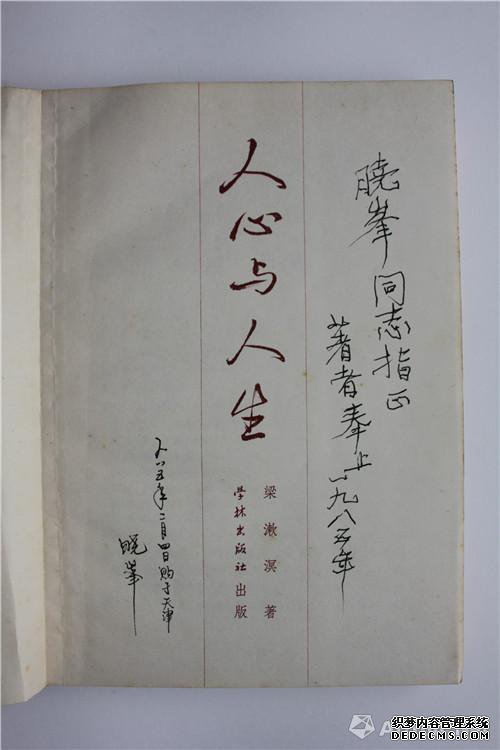 曉峯同志指正
著者奉上一九八五年
人心与人生
梁漱溟 著
学林出版社 出版
八五年二月四日购于天津
晓峯
织梦内容管理系统
DEDECMS.COM